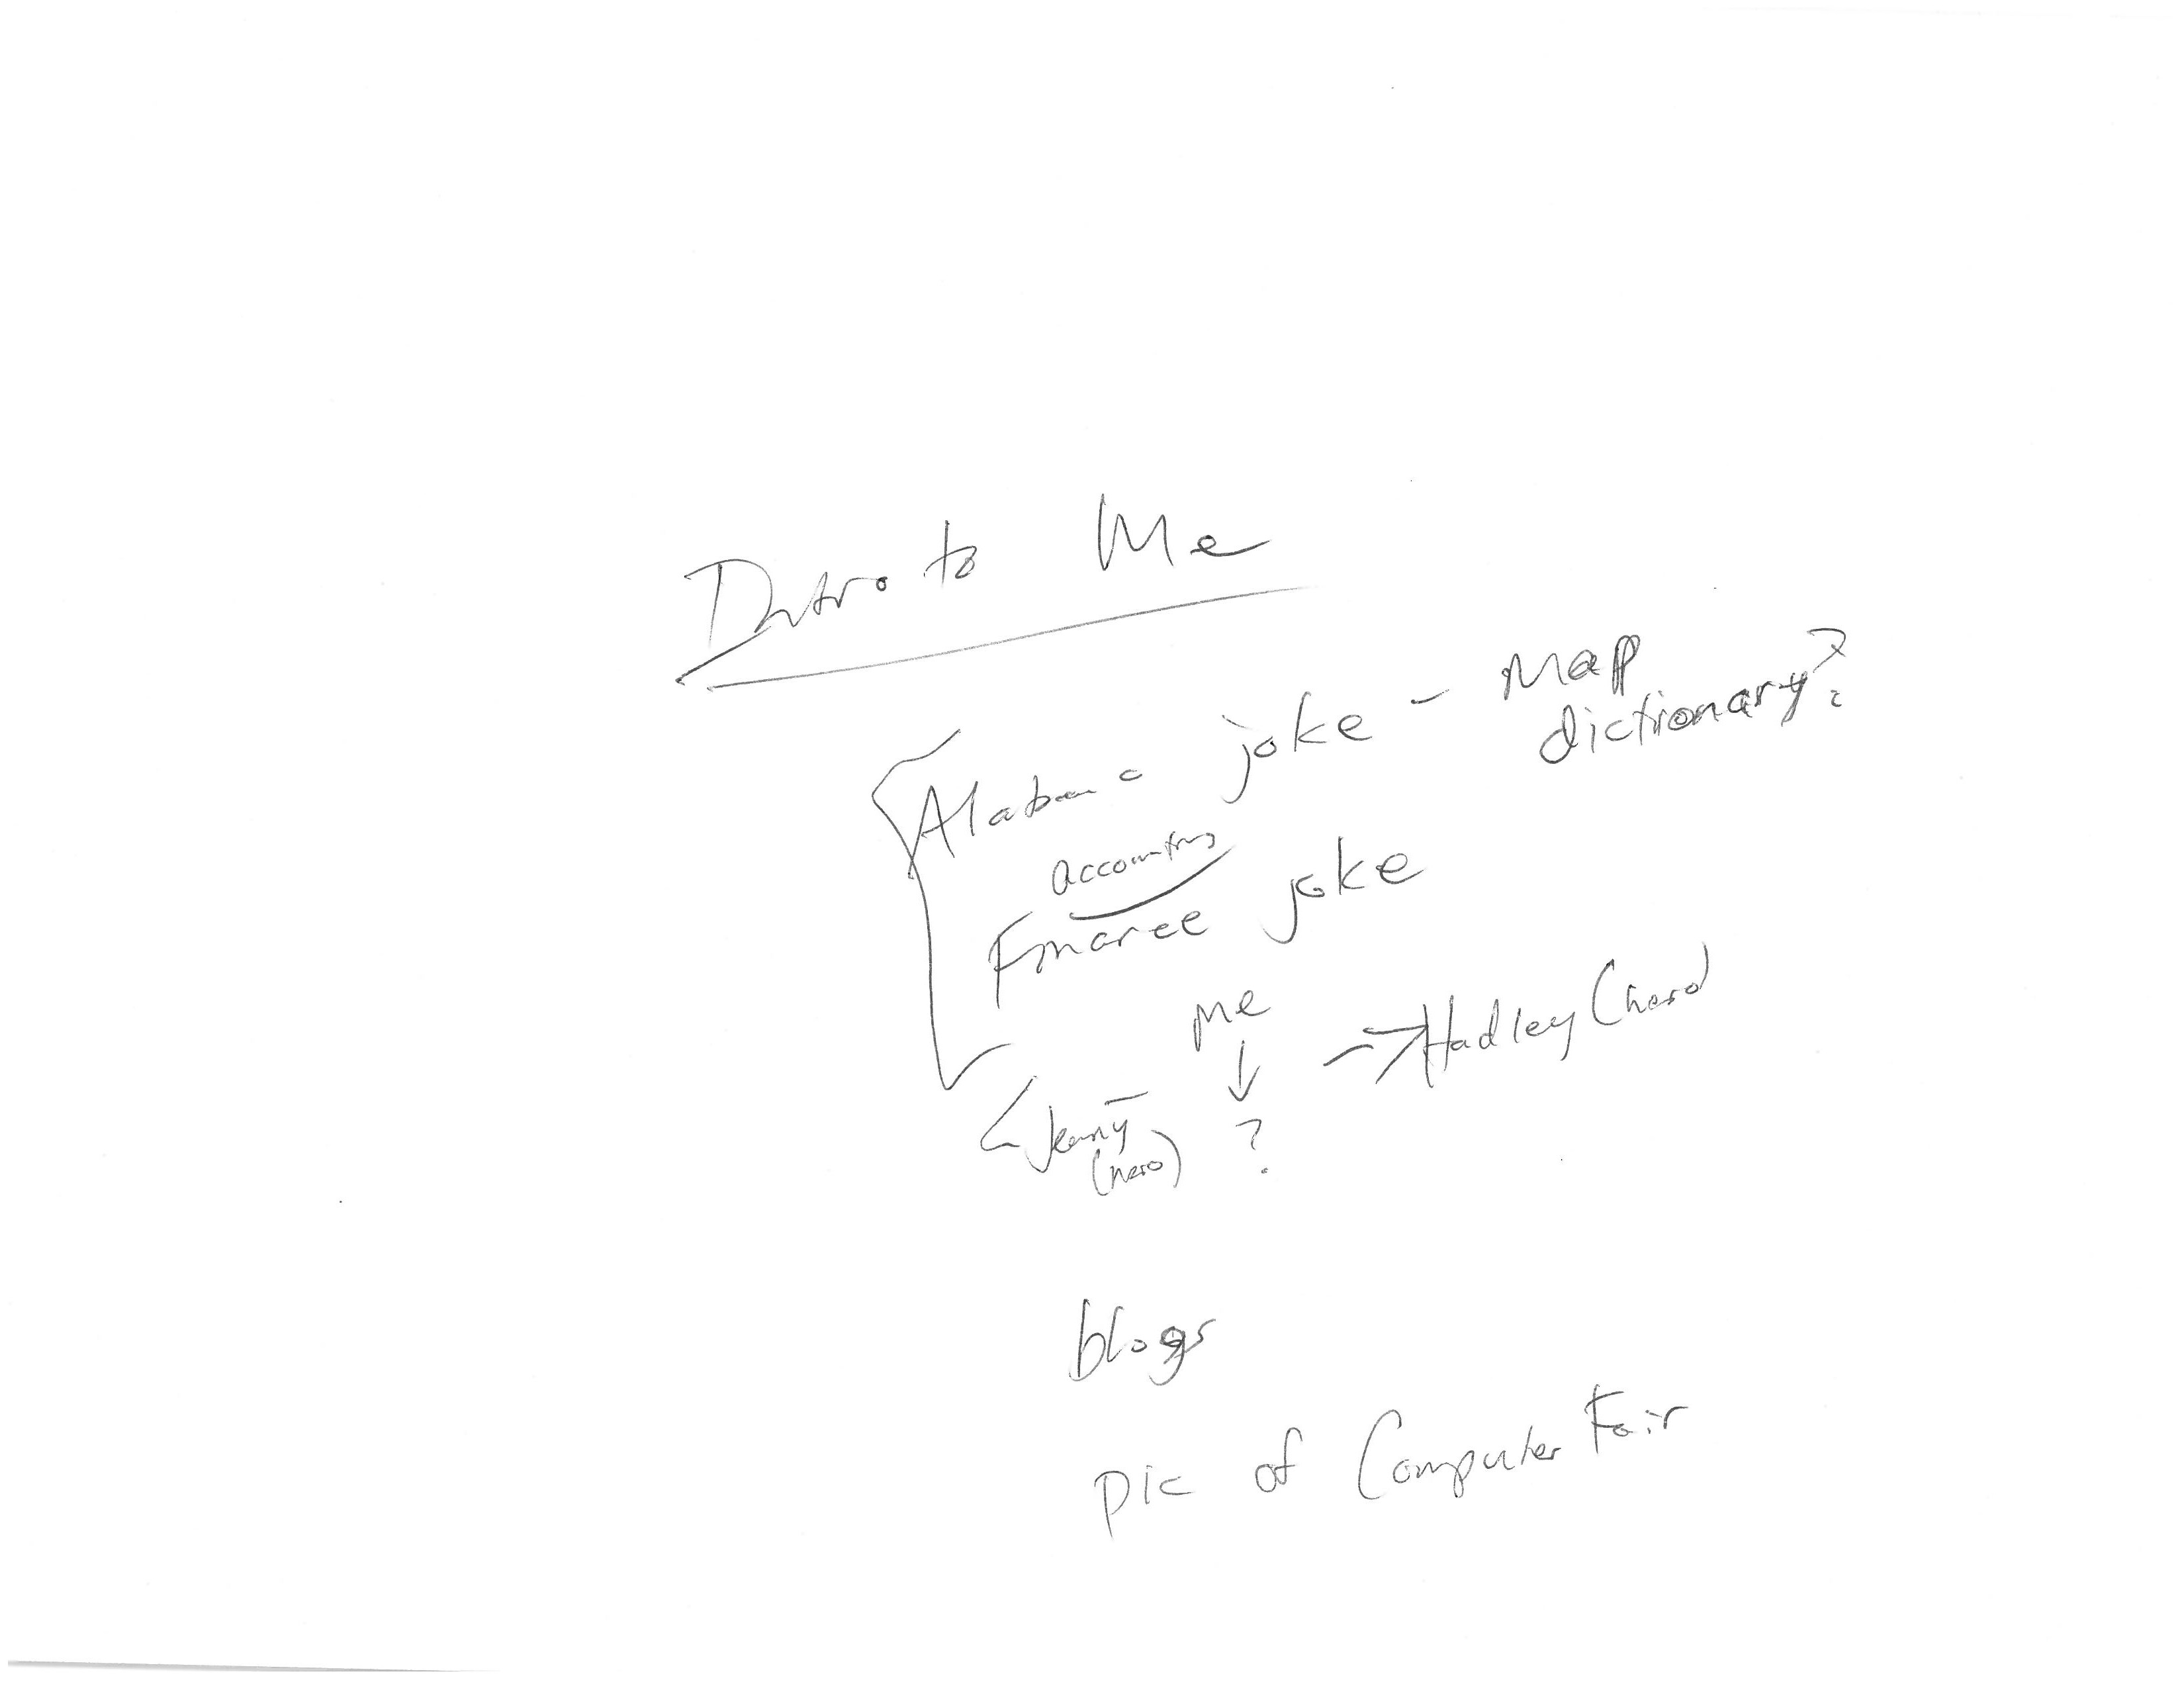 Intro to Me
Alabama joke - Map
dictionary?
accounting
Finance joke
Me
Jenny ? → Hadley (hero)
(hero)
blogs
pic of Computer Fair